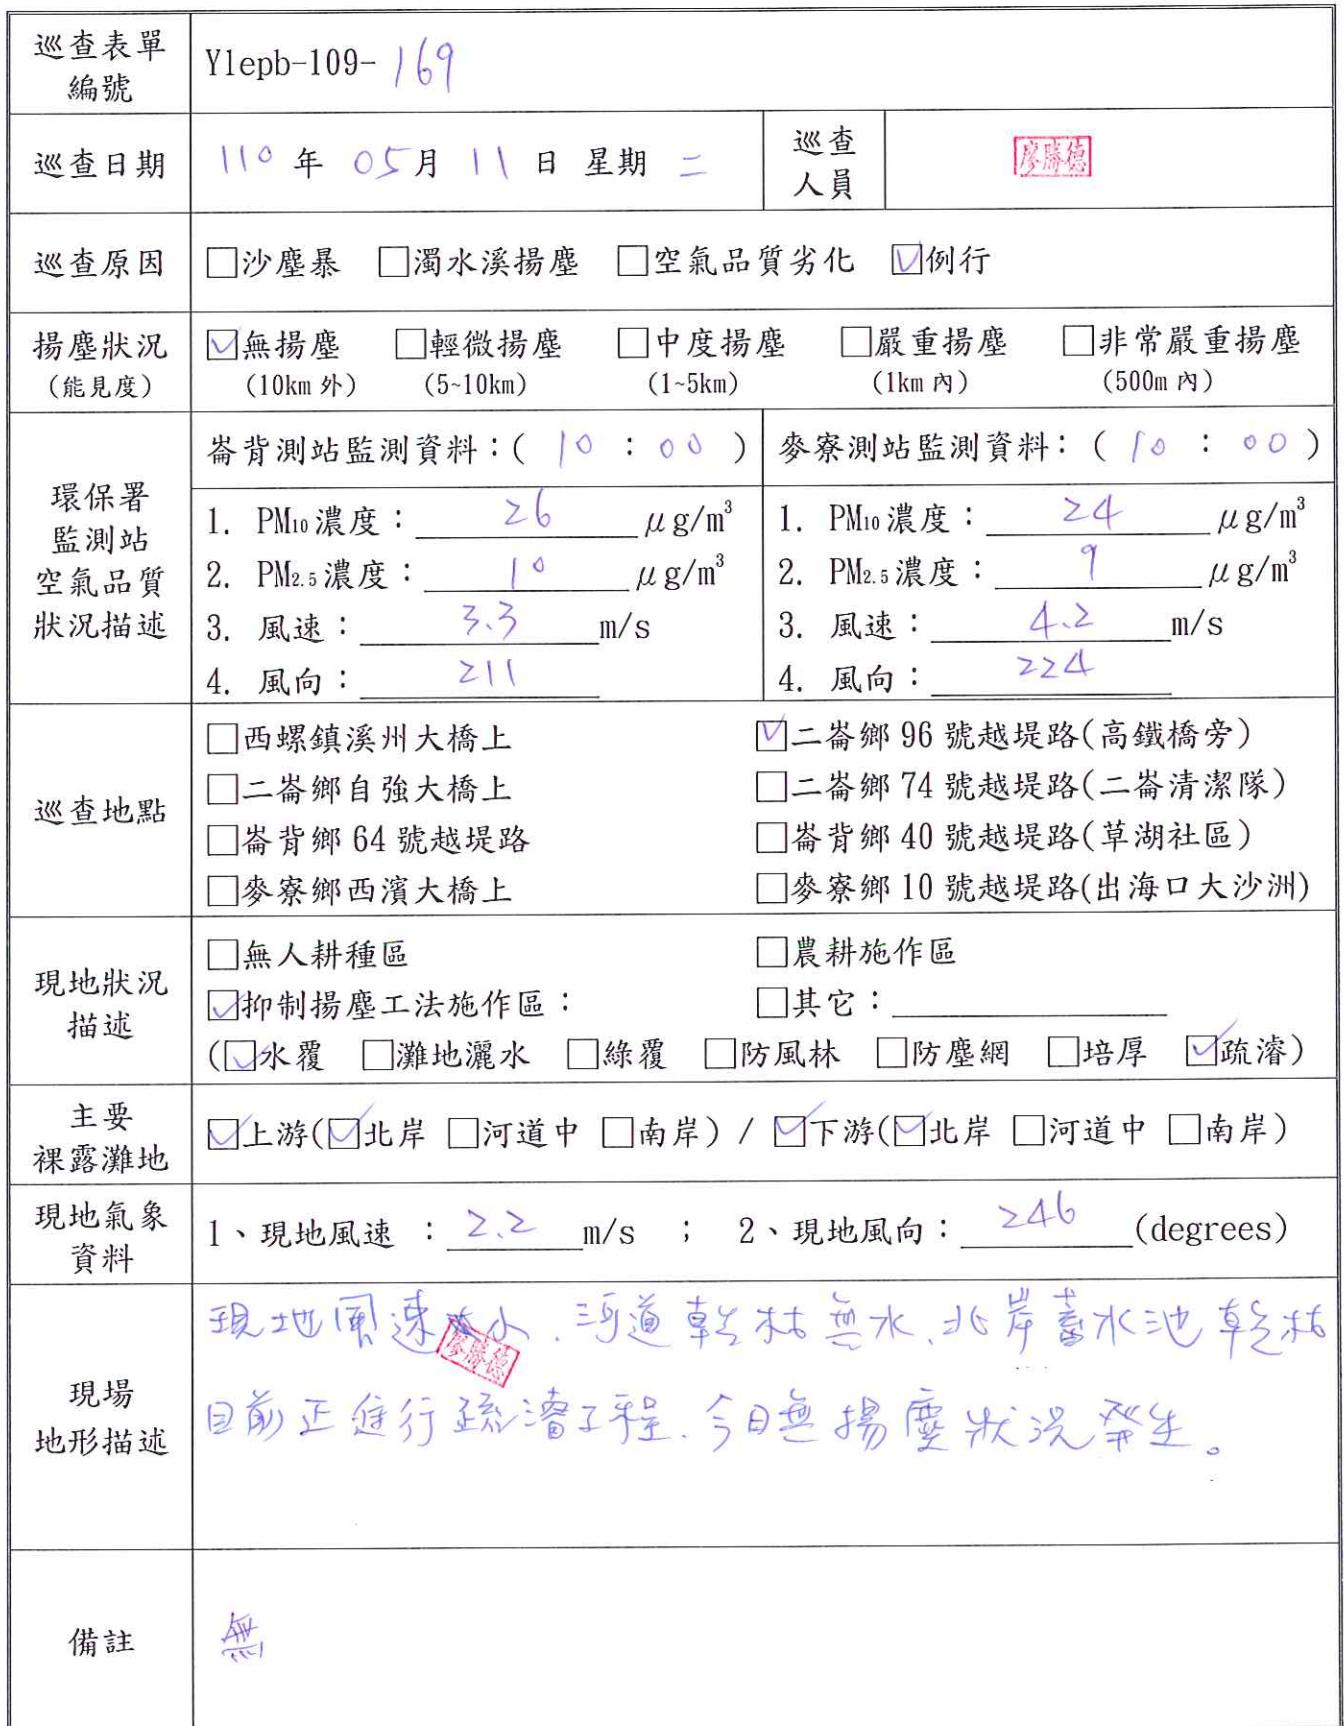 巡查表單
編號
Ylepb-109-169
巡查日期
110 年 05 月 11 日 星期 二
巡查
人員
廖勝德
巡查原因
□沙塵暴 □濁水溪揚塵 □空氣品質劣化 ☑例行
揚塵狀況
(能見度)
☑無揚塵 □輕微揚塵 □中度揚塵 □嚴重揚塵 □非常嚴重揚塵
(10km 外) (5~10km) (1~5km) (1km 內) (500m 內)
環保署
監測站
空氣品質
狀況描述
崙背測站監測資料：( 10 : 00 )
1. PM₁₀濃度：26 μg/m³
2. PM₂.₅濃度：10 μg/m³
3. 風速：3.3 m/s
4. 風向：211
麥寮測站監測資料：( 10 : 00 )
1. PM₁₀濃度：24 μg/m³
2. PM₂.₅濃度：9 μg/m³
3. 風速：4.2 m/s
4. 風向：224
巡查地點
□西螺鎮溪州大橋上 ☑二崙鄉 96 號越堤路(高鐵橋旁)
□二崙鄉自強大橋上 □二崙鄉 74 號越堤路(二崙清潔隊)
□崙背鄉 64 號越堤路 □崙背鄉 40 號越堤路(草湖社區)
□麥寮鄉西濱大橋上 □麥寮鄉 10 號越堤路(出海口大沙洲)
現地狀況
描述
□無人耕種區 □農耕施作區
☑抑制揚塵工法施作區： □其它：
(☑水覆 □灘地灑水 □綠覆 □防風林 □防塵網 □培厚 ☑疏濬)
主要
裸露灘地
☑上游(☑北岸 □河道中 □南岸) / ☑下游(☑北岸 □河道中 □南岸)
現地氣象
資料
1、現地風速 ：2.2 m/s ； 2、現地風向：246 (degrees)
現場
地形描述
現地風速小、河道乾枯無水、北岸蓄水池乾枯
廖勝德
目前正進行疏濬工程、今日無揚塵狀況發生。
備註
無